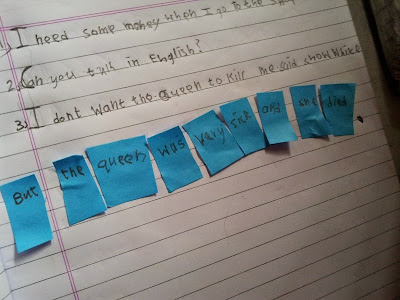 1. I need some money when I go to the shop
2. Can you talk in English?
3. I dont want the Queen to kill me said snow White
But the queen was very sick and she died.